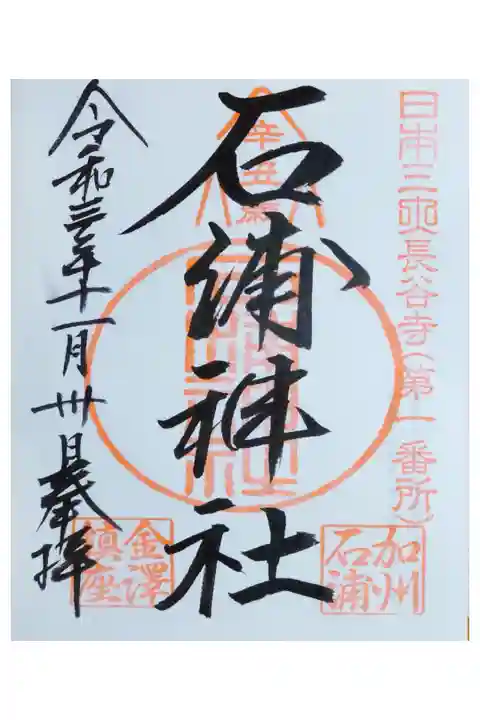 日本三所長谷寺(第一番所)
加州
石浦
辛丑歳
石浦神社
金澤
鎮座
令和三年十一月卅日奉拝